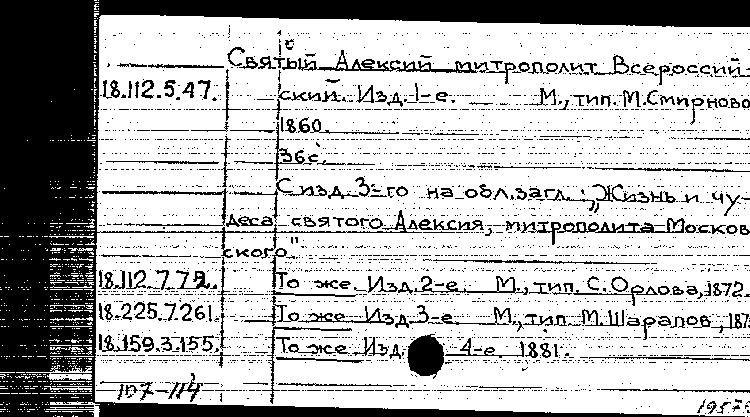 Святый Алексий митрополит Всероссий-
18.112.5.47. ский. Изд. 1-е. М., тип. М. Смирново
1860.
36с.
С изд. 3-го на обл. загл.: „Жизнь и чу-
деса святого Алексия, митрополита Москов
ского"
18.112.7.72. То же. Изд. 2-е. М., тип. С. Орлова, 1872.
18.225.7.261. То же Изд. 3-е. М., тип. М. Шарапов, 187
18.159.3.155. То же. Изд. 4-е 1881.
107-114